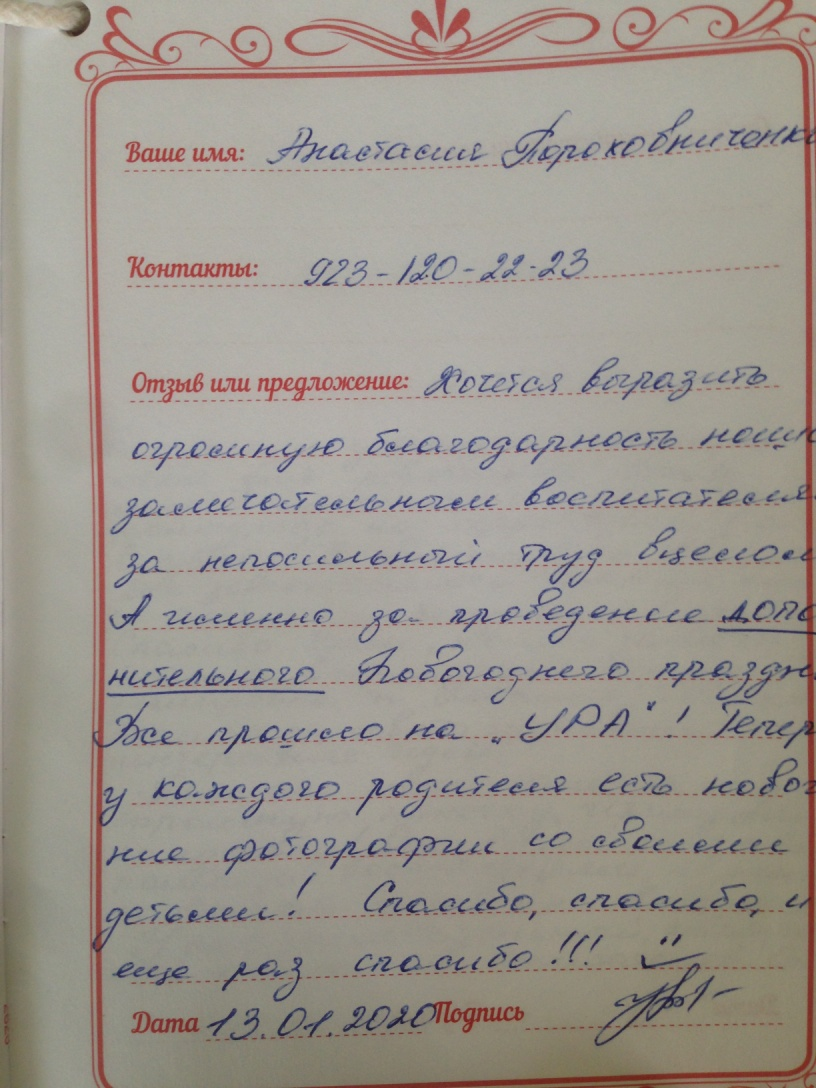 Ваше имя: Анастасия Пороховниченк
Контакты: 923-120-22-23
Отзыв или предложение: Хочется выразить
огромную благодарность наши
замечательным воспитателям
за непосильный труд вцелом
А именно за проведение допо
нительного Новогоднего праздн
Все прошло на „УРА"! Тепер
у каждого родителя есть новог
ние фотографии со своими
детьми! Спасибо, спасибо, и
еще раз спасибо!!!
Дата 13.01.2020 Подпись